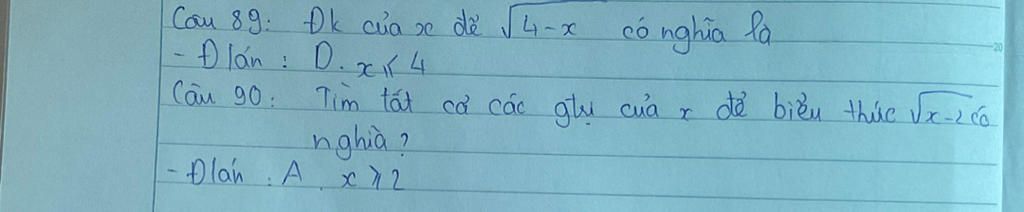 Câu 89: Đk của x để √4-x có nghĩa là
- Đ/án : D. x ≤ 4
Câu 90: Tìm tất cả các gtrị của x để biểu thức √x-2 có
nghĩa?
- Đ/án : A. x ≥ 2
20